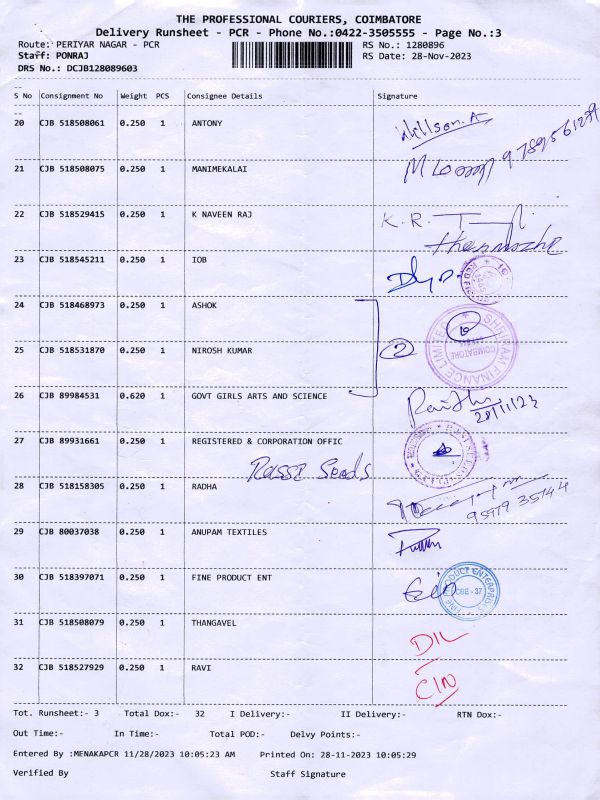 THE PROFESSIONAL COURIERS, COIMBATORE
Delivery Runsheet - PCR - Phone No.:0422-3505555 - Page No.:3
Route: PERIYAR NAGAR - PCR RS No.: 1280896
Staff: PONRAJ RS Date: 28-Nov-2023
DRS No.: DCJB128089603
S No Consignment No Weight PCS Consignee Details Signature
20 CJB 518508061 0.250 1 ANTONY Willson. A
21 CJB 518508075 0.250 1 MANIMEKALAI
22 CJB 518529415 0.250 1 K NAVEEN RAJ K. R.
23 CJB 518545211 0.250 1 IOB
24 CJB 518468973 0.250 1 ASHOK
25 CJB 518531870 0.250 1 NIROSH KUMAR 2 SHRIRAM FINANCE LIMITED COIMBATORE
26 CJB 89984531 0.620 1 GOVT GIRLS ARTS AND SCIENCE 28/11/23
27 CJB 89931661 0.250 1 REGISTERED & CORPORATION OFFIC
Rasse Seeds
28 CJB 518158305 0.250 1 RADHA
29 CJB 80037038 0.250 1 ANUPAM TEXTILES
30 CJB 518397071 0.250 1 FINE PRODUCT ENT CBE - 37
31 CJB 518508079 0.250 1 THANGAVEL DIL
32 CJB 518527929 0.250 1 RAVI CIN
Tot. Runsheet:- 3 Total Dox:- 32 I Delivery:- II Delivery:- RTN Dox:-
Out Time:- In Time:- Total POD:- Delvy Points:-
Entered By :MENAKAPCR 11/28/2023 10:05:23 AM Printed On: 28-11-2023 10:05:29
Verified By Staff Signature